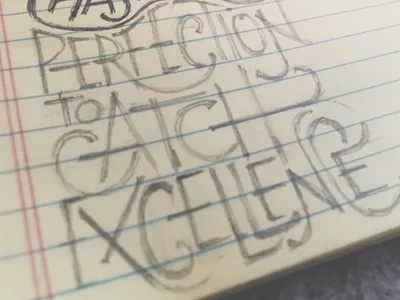 HAS
PERFECTION
TO
CATCH
EXCELLENCE